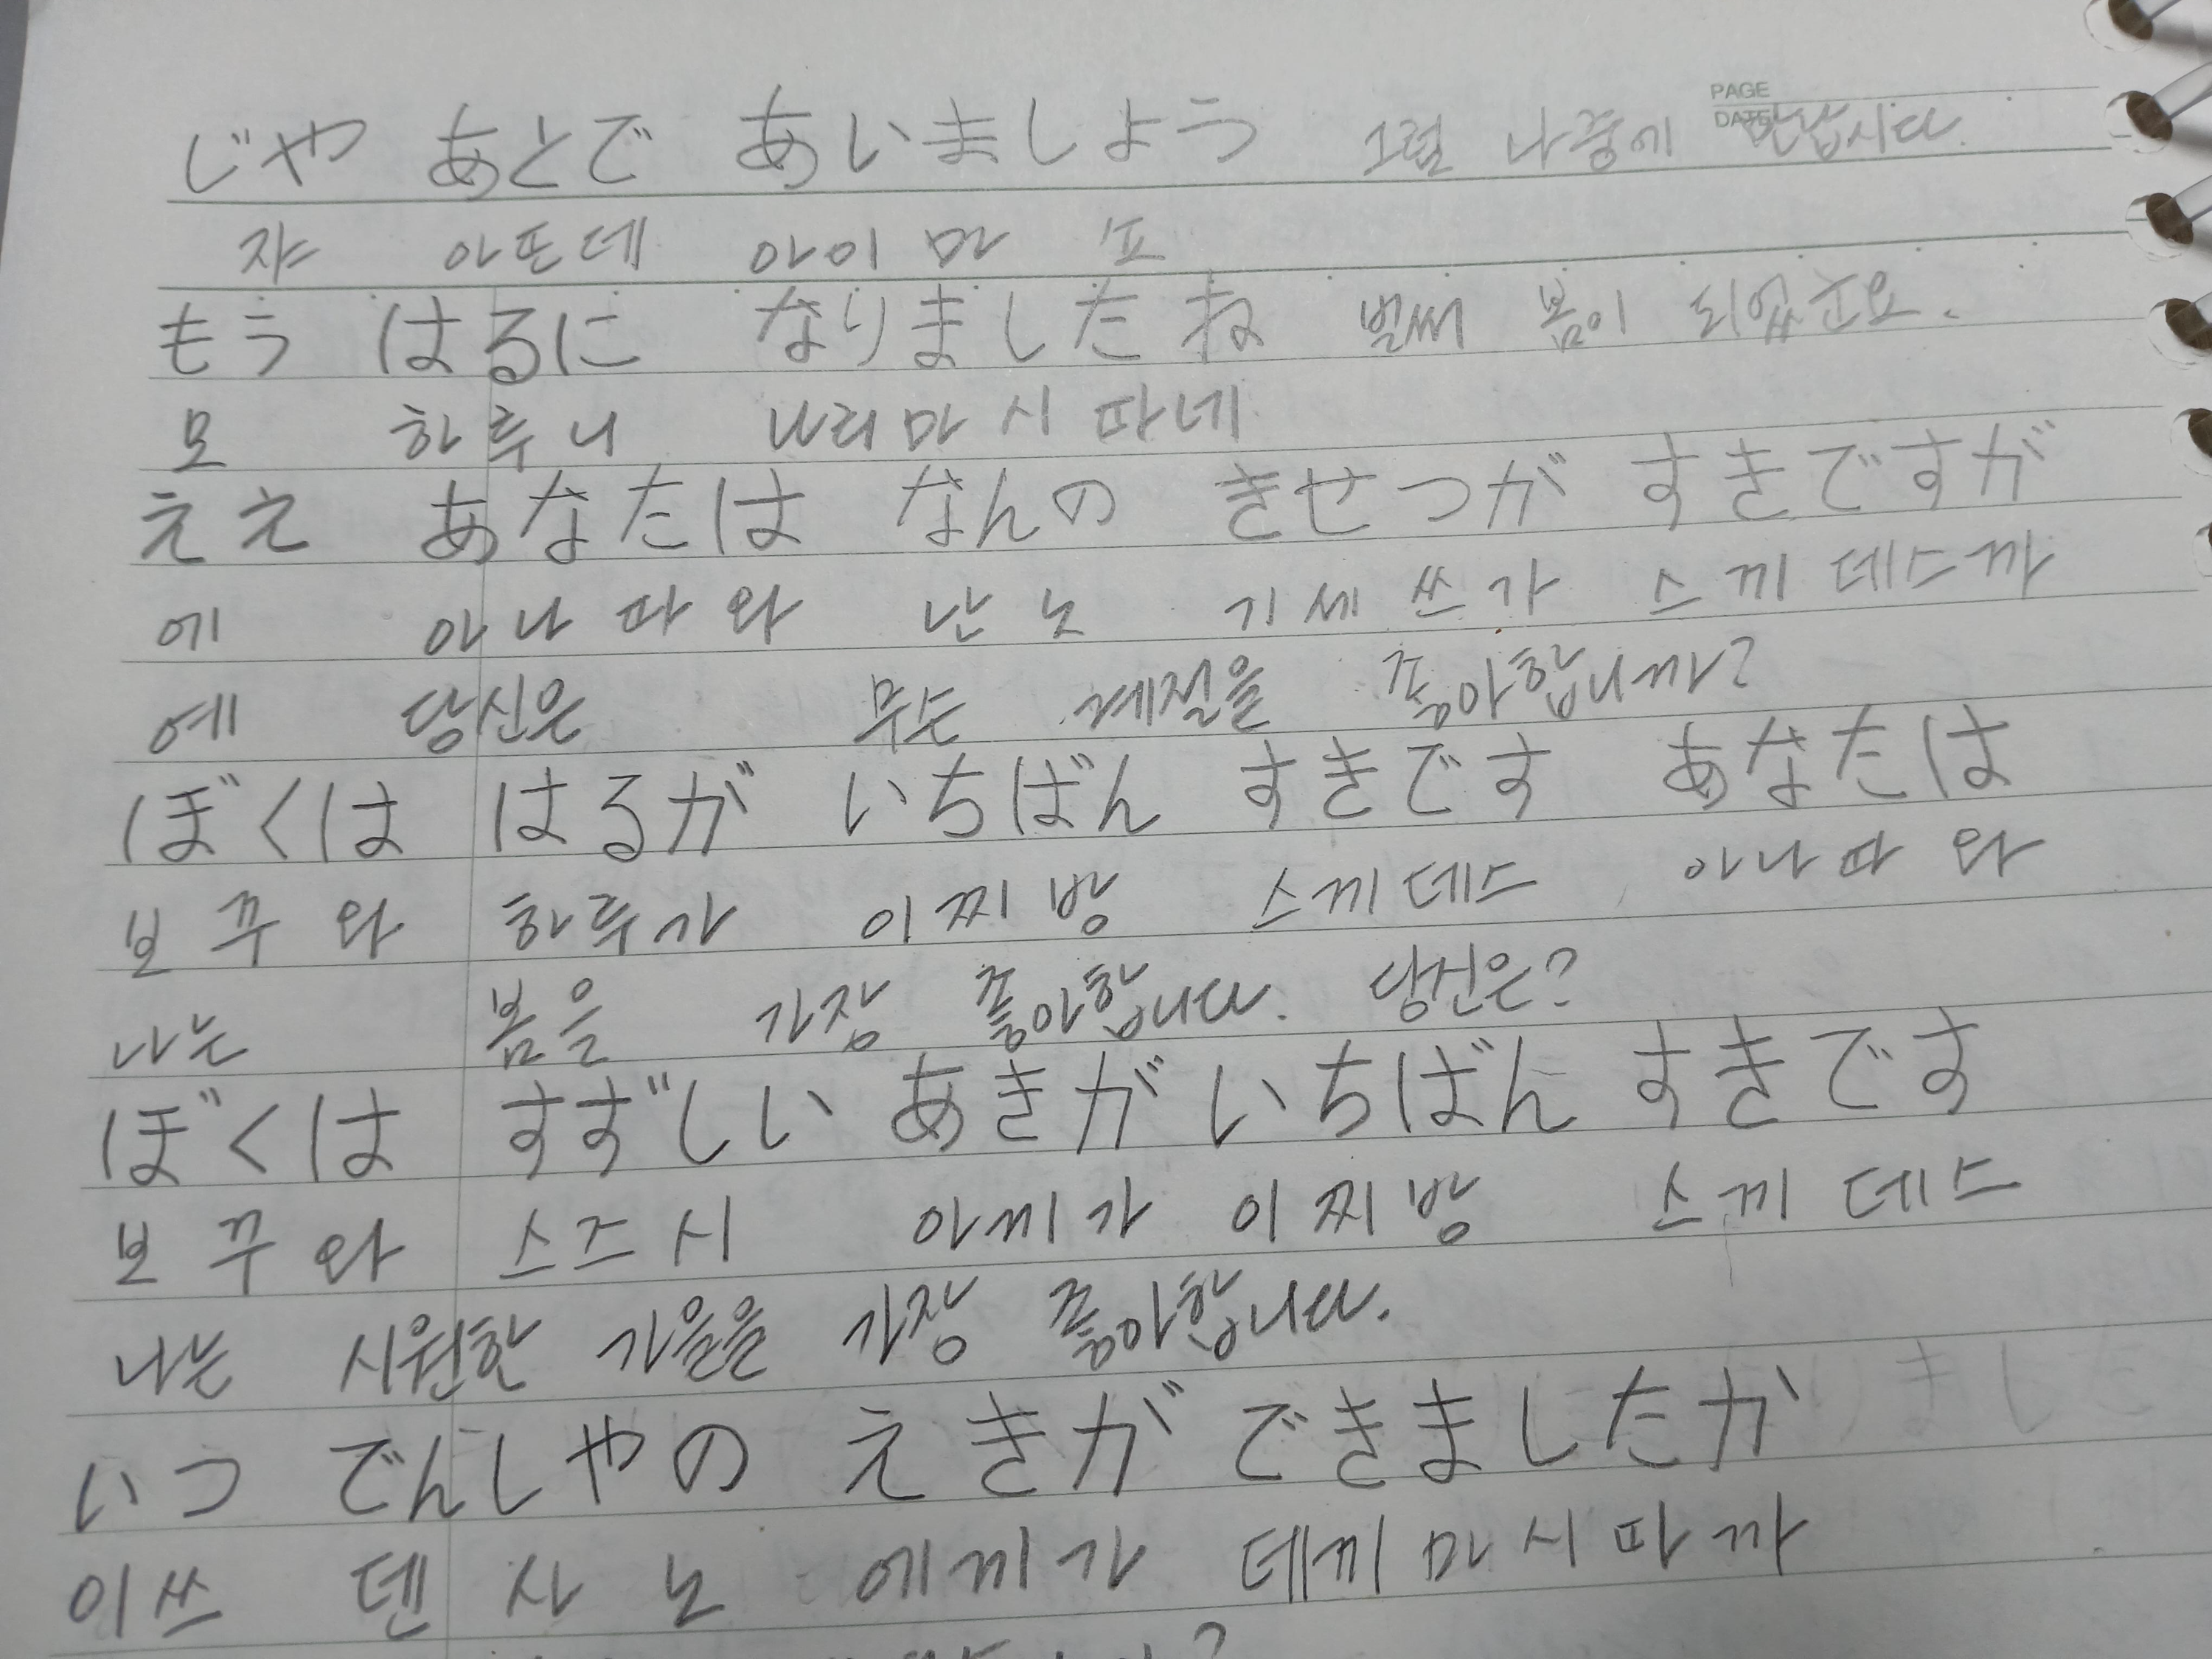 PAGE
DATE
じや あとで あいましよう 그럼 나중에 만납시다.
쟈 아또데 아이마 쇼
もう はるに なりましたね 벌써 봄이 되었군요.
모 하루니 나리마시따네
ええ あなたは なんの きせつが すきですが
에 아나따와 난노 기세쯔가 스끼데스까
에 당신은 무슨 계절을 좋아합니까?
ぼくは はるが いちばん すきです あなたは
보꾸와 하루가 이찌방 스끼데스 아나따와
나는 봄을 가장 좋아합니다. 당신은?
ぼくは すずしい あきが いちばん すきです
보꾸와 스즈시 아끼가 이찌방 스끼데스
나는 시원한 가을을 가장 좋아합니다.
いつ でんしやの えきが できましたか
이쯔 덴샤노 에끼가 데끼마시따까